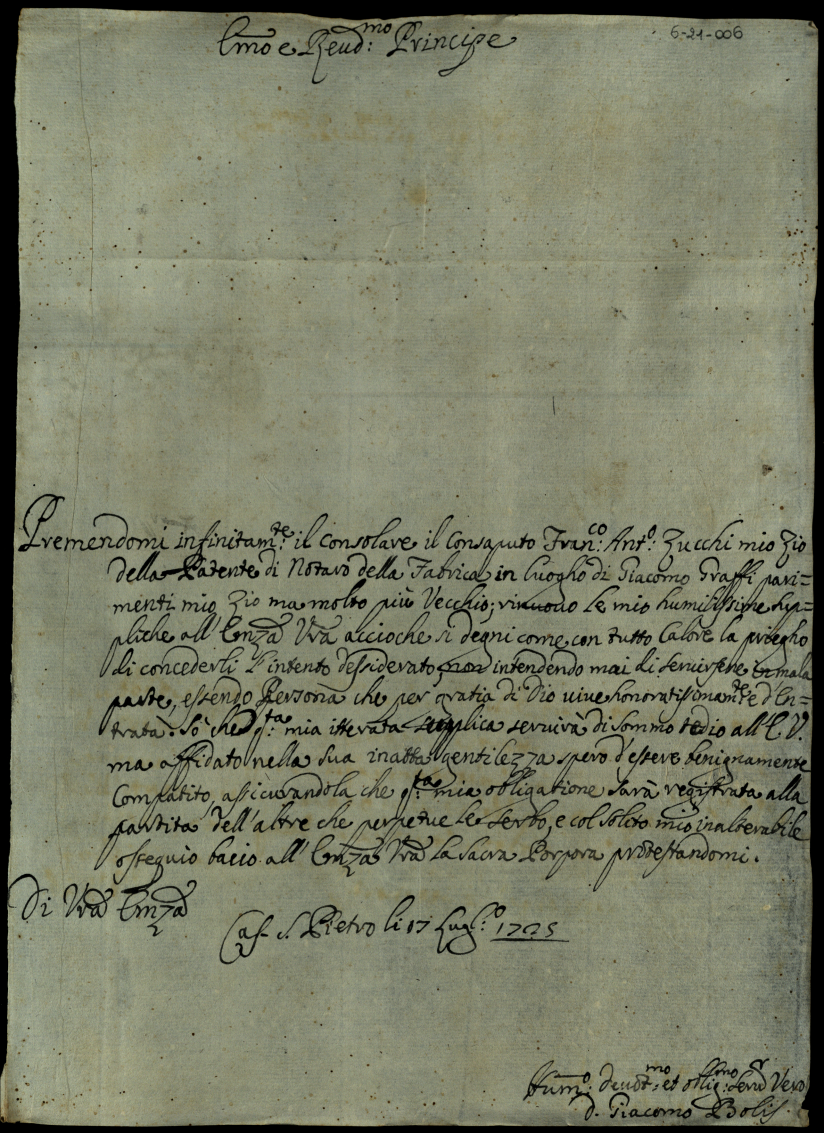 6-21-006
Emo e Reud:mo Principe
Premendomi infinitam:te il consolare il Consaputo Fran:co Ant:o Zucchi mio Zio
della Patente di Notaro della Fabrica in luogho di Giacomo Graffi pari=
menti mio Zio ma molto più Vecchio; rinuouo le mie humilissime sup=
pliche all'Emza Vra accioche si degni come con tutto Calore la priegho
di concederli l'intento dessiderato, non intendendo mai di seruirsene in mala
parte, essendo Persona che per gratia di Dio uiue honoratissimam:te d'En=
trata. Sò che q:ta mia itterata supplica seruirà di sommo tedio all'E. V.
ma affidato nella sua inatta gentilezza spero d'essere benignamente
Compatito, assicurandola che q:ta mia obligatione sarà registrata alla
partita dell'altre che perpetue le serbo, e col solito mio inalterabile
ossequio bacio all'Emza Vra la Sacra Porpora protestandomi.
Di Vra Emza
Cas. S. Pietro li 17 Lug:o 1725
Hum:o deuot:mo et oblig:mo Seru:r Vero
D. Giacomo Bolis